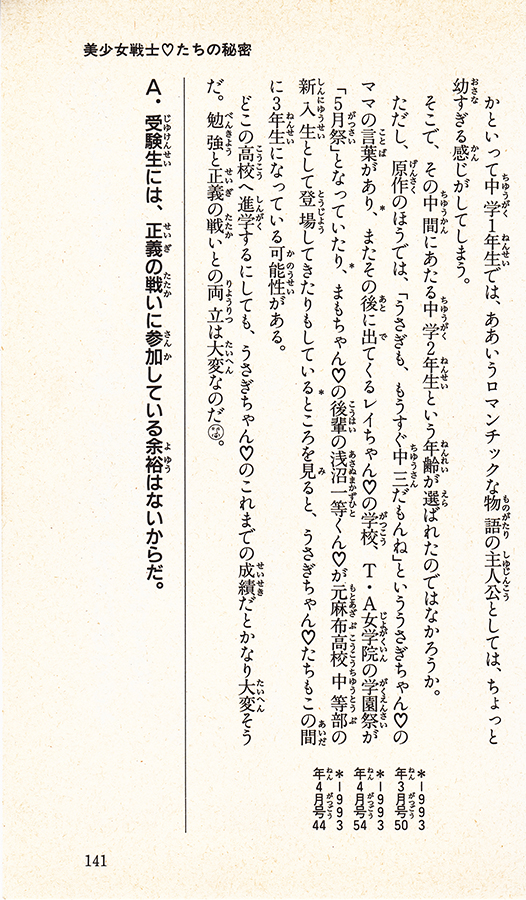 美少女戦士♡たちの秘密
かといって中学1年生では、ああいうロマンチックな物語の主人公としては、ちょっと
幼すぎる感じがしてしまう。
そこで、その中間にあたる中学2年生という年齢が選ばれたのではなかろうか。
ただし、原作のほうでは、「うさぎも、もうすぐ中三だもんね」といううさぎちゃん♡の
ママの言葉があり、*またその後に出てくるレイちゃん♡の学校、T・A女学院の学園祭が
「5月祭」となっていたり、*まもちゃん♡の後輩の浅沼一等くん♡が元麻布高校中等部の
新入生として登場してきたりもしている*ところを見ると、うさぎちゃん♡たちもこの間
に3年生になっている可能性がある。
どこの高校へ進学するにしても、うさぎちゃん♡のこれまでの成績だとかなり大変そう
だ。勉強と正義の戦いとの両立は大変なのだ。
A・受験生には、正義の戦いに参加している余裕はないからだ。
*1993
年3月号50
*1993
年4月号54
*1993
年4月号44
141